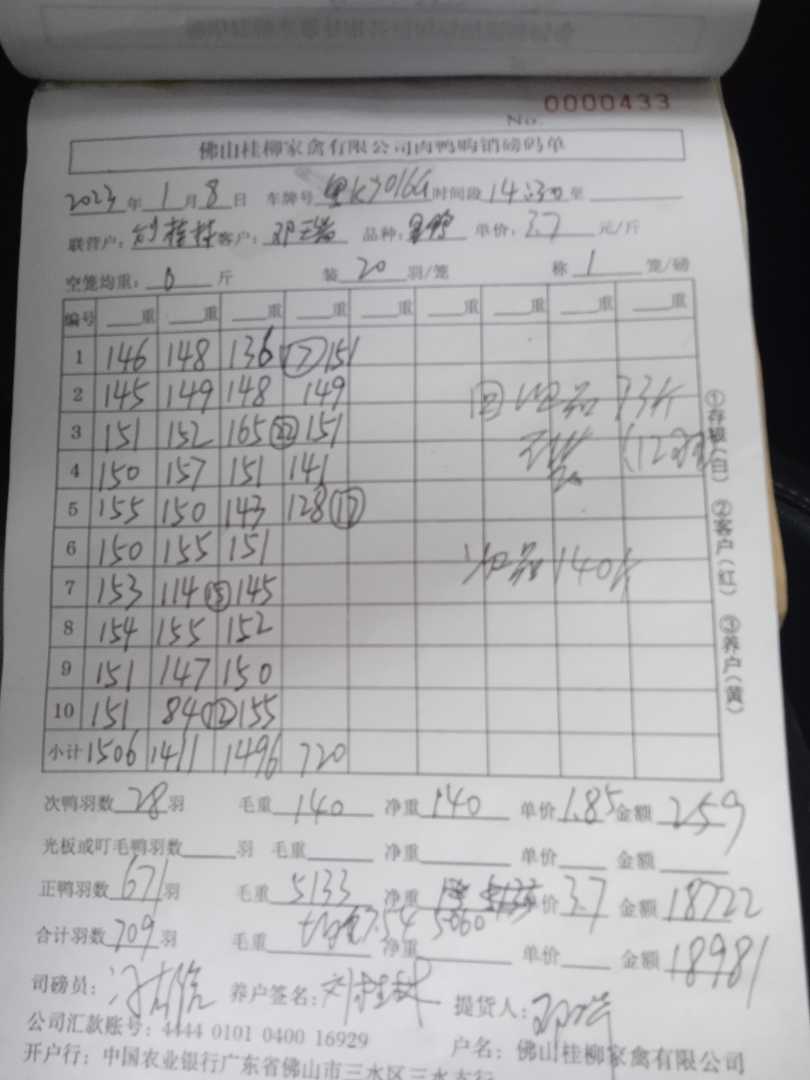 No. 0000433
佛山桂柳家禽有限公司肉鸭购销磅码单
2023年1月8日 车牌号 时间段14:30至
联营户: 刘桂林 客户: 邓瑞 品种: 单价: 3.7 元/斤
空笼均重: 0 斤 装20羽/笼 称1笼/磅
编号 重 重 重 重 重 重 重 重 重
1 146 148 136 ⑰ 151
2 145 149 148 149
3 151 152 165 ㉒ 151
4 150 157 151 141
5 155 150 143 128 ⑰
6 150 155 151
7 153 114 ⑮ 145
8 154 155 152
9 151 147 150
10 151 84 ⑫ 155
小计 1506 1411 1496 720
73斤
140斤
①存根(白) ②客户(红) ③养户(黄)
次鸭羽数28羽 毛重140 净重140 单价1.85 金额259
光板或叮毛鸭羽数 羽 毛重 净重 单价 金额
正鸭羽数671羽 毛重5133 净重 单价3.7 金额18722
合计羽数709羽 毛重 7.54 净重 5060 单价 金额18981
司磅员: 养户签名: 刘桂林 提货人: 邓瑞
公司汇款账号: 4444 0101 0400 16929 户名: 佛山桂柳家禽有限公司
开户行: 中国农业银行广东省佛山市三水区三水支行